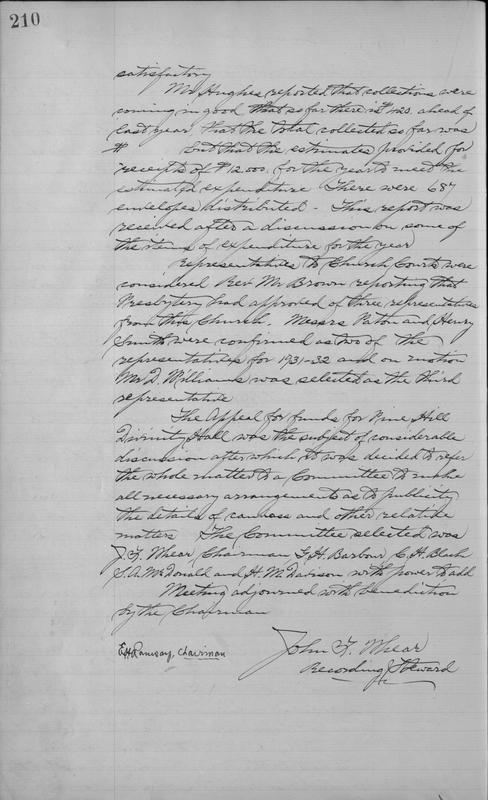 210
satisfactory
Mr Hughes reported that collections were
coming in good that so far there is $420. ahead of
last year that the total collected so far was
$ but that the estimates provided for
receipts of $12,000. for the year to meet the
estimated expenditure There were 687
envelopes distributed - This report was
received after a discussion on some of
the items of expenditure for the year
representatives to Church Courts were
considered Rev. Mr Brown reporting that
Presbytery had approved of three representatives
from this Church. Messrs Paton and Henry
Smith were confirmed as two of the
representatives for 1931-32 and on motion
Mr D. Williams was selected as the third
representative
The Appeal for funds for Pine Hill
Divinity Hall was the subject of considerable
discussion after which it was decided to refer
the whole matter to a Committee to make
all necessary arrangements as to publicity
the details of canvass and other relative
matters The Committee selected was
J. F. Whear Chairman F. H. Barbour C. H. Black
S. A. McDonald and H. M. Davison with power to add
Meeting adjourned with benediction
by the Chairman
EH Ramsay, Chairman
John F. Whear
Recording Steward